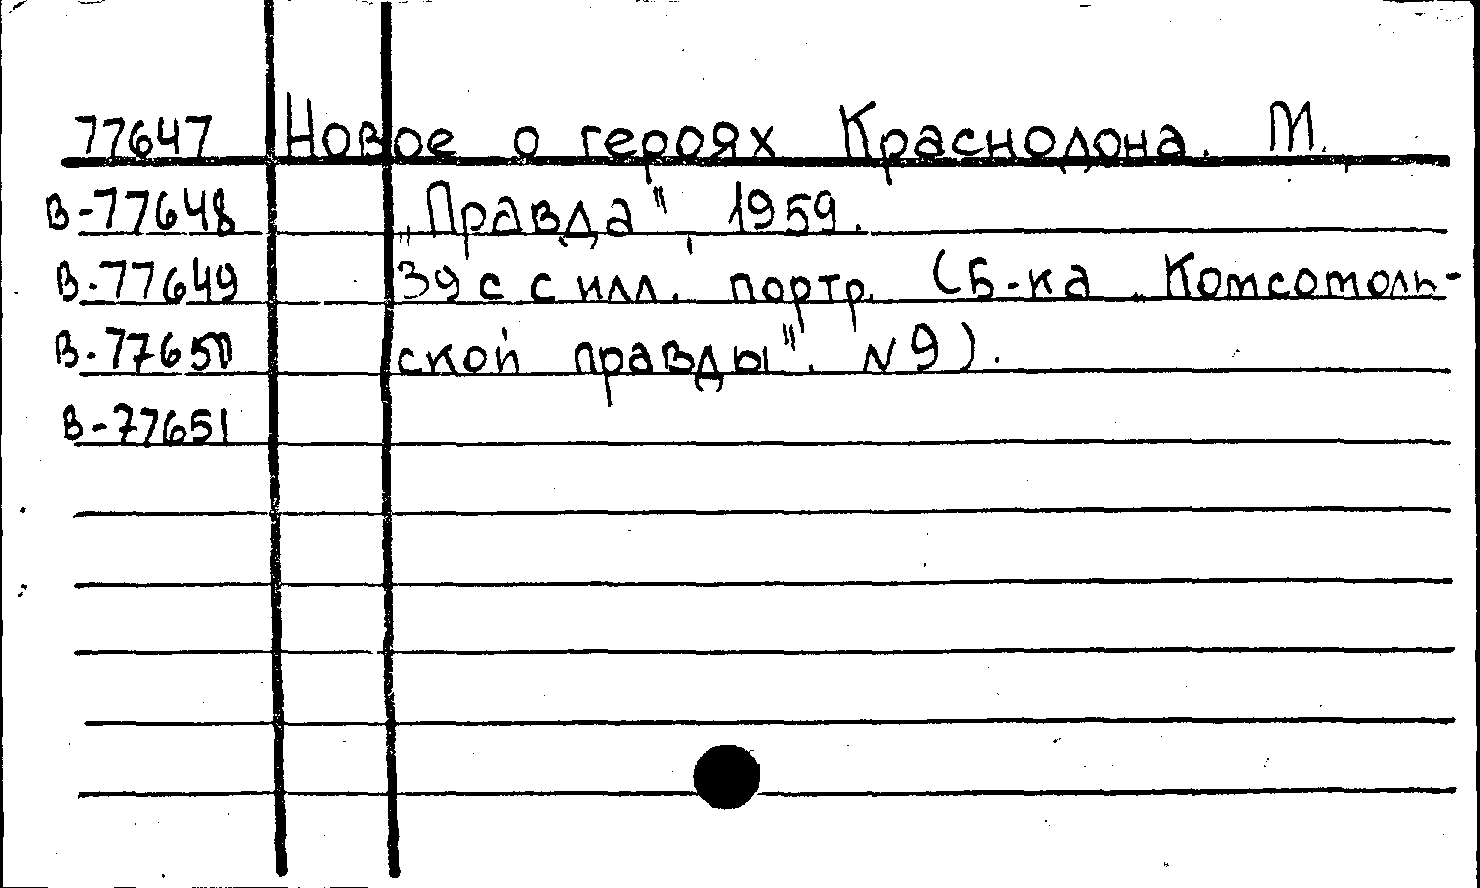 77647 Новое о героях Краснодона. М.,
В-77648 „Правда", 1959.
В-77649 39 с с илл. портр. (Б-ка „Комсомоль-
В-77650 ской правды". N 9).
В-77651